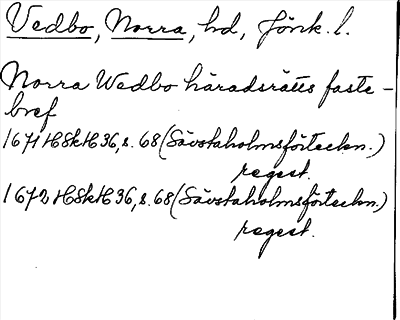 Vedbo, Norra, hd, Jönk. l.
Norra Wedbo häradsrätts faste-
bref
1671 HSkH 36, s. 68 (Sävstaholmsförteckn.)
regest.
1672 HSkH 36, s. 68 (Sävstaholmsförteckn.)
regest.